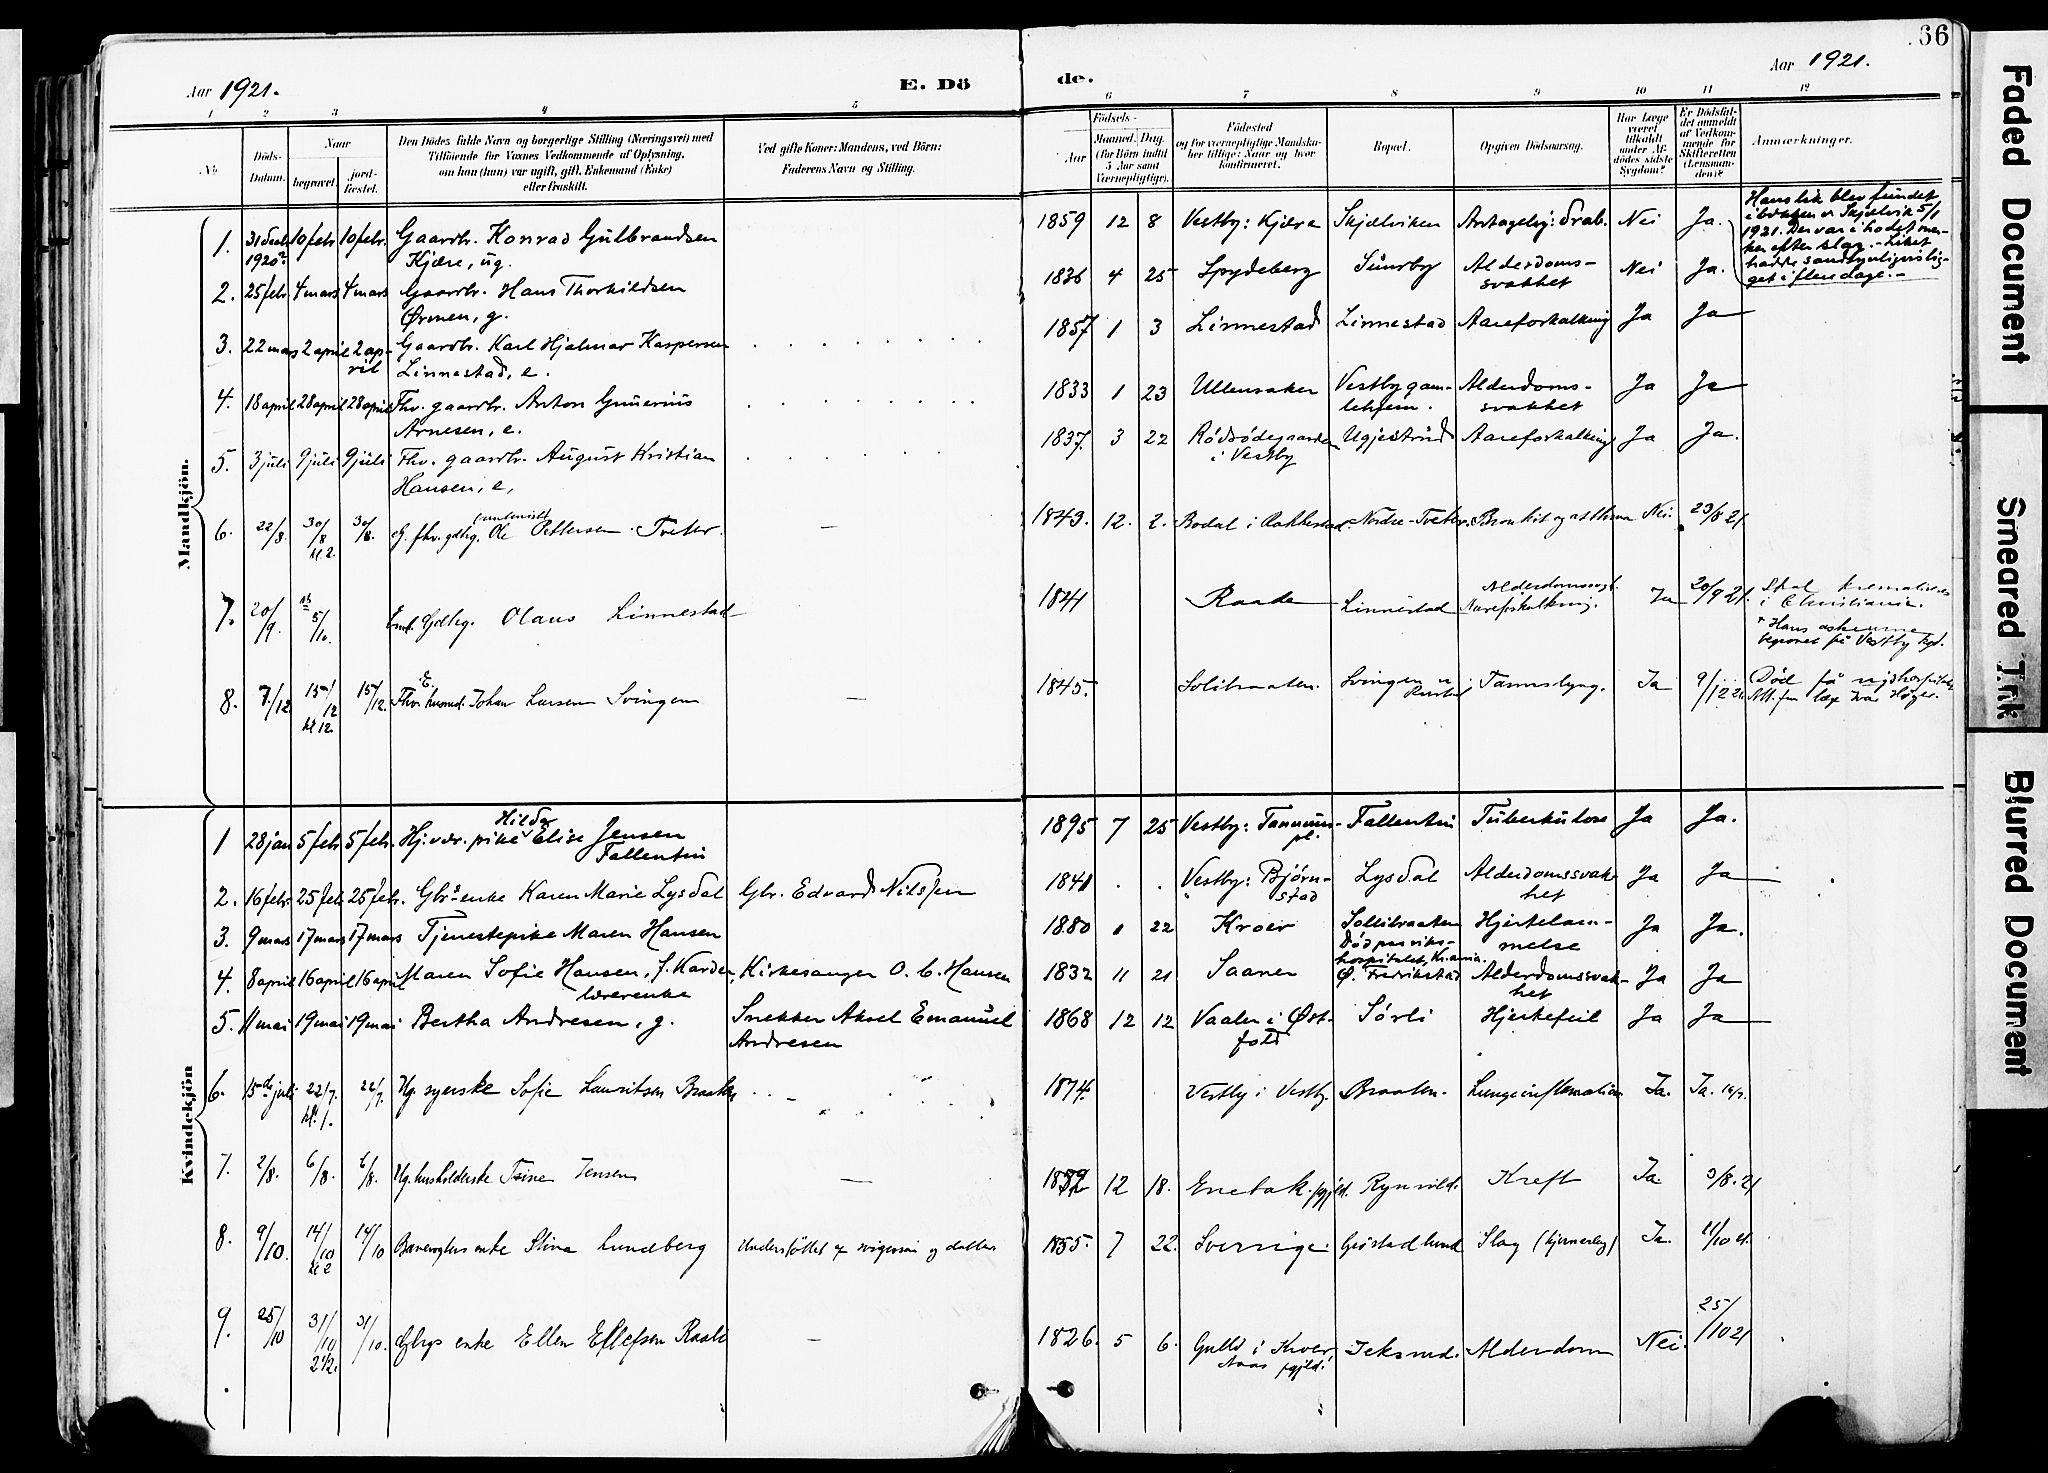 66
Aar 1921.
E. Dö
de.
Aar 1921.
1 2 3 4 5 6 7 8 9 10 11 12
No
Döds-
Datum.
Naar
begravet.
jord-
fæstet.
Den Dödes fulde Navn og borgerlige Stilling (Næringsvei) med
Tilföiende for Voxnes Vedkommende af Oplysning,
om han (hun) var ugift, gift, Enkemand (Enke)
eller fraskilt.
Ved gifte Koner: Mandens, ved Börn:
Faderens Navn og Stilling.
Födsels-
Aar
Maaned. Dag.
(for Börn indtil
5 Aar samt
Værnepligtige).
Födested
og for værnepligtige Mandska-
ber tillige: Naar og hvor
konfirmeret.
Bopæl.
Opgiven Dödsaarsag.
Har Læge
været
tilkaldt
under Af-
dödes sidste
Sygdom?
Er Dödsfal-
det anmeldt
af Vedkom-
mende for
Skifteretten
(Lensman-
den)?
Anmærkninger.
Mandkjön.
1. 31 Decbr 10 febr 10 febr. Gaardbr. Konrad Gulbrandsen 1859 12 8 Vestby: Kjære Skjelviken Antagelig: Drab. Nei Ja.
1920? Kjære, ug.
Hans lik blev fundet
i bækken v. Skjelvik 5/1
1921. Der var i hodet mer-
ker efter slag. - Liket
hadde sandsynligvis lig-
get i flere dage. -
2. 25 febr. 4 mars 4 mars Gaardbr. Hans Thorkildsen 1836 4 25 Spydeberg Sunby Alderdoms- Nei Ja.
Ørmen, g. svakhet
3. 22 mars 2 april 2 ap- Gaardbr. Karl Hjalmar Kaspersen 1857 1 3 Linnestad Linnestad Aareforkalkning Ja Ja
ril Linnestad, e.
4. 18 april 28 april 28 april Fhv. gaardbr. Anton Gunerius 1833 1 23 Ullensaker Vestby gam- Alderdoms- Ja Ja
Arnesen, e. lehjem. svakhet
5. 3 juli 9 juli 9 juli Fhv. gaardbr. August Kristian 1837. 3 22 Rødsødegaarden Ugjestrud Aareforkalkning Ja Ja.
Hansen, e, i Vestby
6. 22/8. 30/8 30/8. G. fhv. gdbrg. Ole Pettersen Tveter. — 1843. 12. 2. Bodal i Rakkestad. Nordre-Tveter. Bronkit og asthma Nei. 23/8 21
kl 2.
7. 20/9. 5/10. Enk. Gdbrg. Olaus Linnestad 1841 Raade Linnestad Aareforkalkning. Ja 20/9 21.
Skal kremeres
i Christiania.
* Hans askeurne
begravet på Vestby kgd.
8. 7/12 15/12 15/12. E. Fhv. husmd. Johan Larsen Svingen — 1845. Solibraaten. Svingen Ja 9/12 21
kl 12.
Død på
Att. fra læge Ivar
Kvindekjön
1 28 jan 5 febr 5 febr. Hj.vær. pike Hilda Elise Jensen 1895 7 25 Vestby: Tannum- Fallentin Tuberkulose Ja Ja.
Fallentin pl.
2. 16 febr. 25 feb. 25 febr. Gbrs enke Karen Marie Lysdal Gbr. Edvard Nilssen 1841 . . Vestby: Bjørn- Lysdal Alderdomssvak- Ja Ja
stad het
3. 9 mars 17 mars 17 mars Tjenestepike Maren Hansen 1880 1 22 Kroer Sollibraaten Hjertelam- Ja Ja.
Død paa riks- melse
hospitalet, Kr.ania.
4. 8 april 16 april 16 april Maren Sofie Hansen, f. Karder, Kirkesanger O. C. Hansen 1832 11 21 Saaner Ø. Fredrikstad Alderdomssvak- Ja Ja
lærerenke het
5. 11 mai 19 mai 19 mai Bertha Andresen, g. Snekker Aksel Emanuel 1868 12 12 Vaaler i Øst- Sørli Hjertefeil Ja Ja
Andresen fold
6. 15de juli 22/7. 22/7. Ug. syerske Sofie Lauritsen Braaten 1874. Vestby i Vestby. Braaten. Lungeinflamation Ja. Ja.
kl. 1.
7. 2/8. 6/8. 6/8. Ug. husholderske Trine Jensen — 12 18. Enebak pgjld. Rynvild. Kreft Ja. 3/8. 21
8. 9/10. 14/10 14/10 Banevogters enke Stina Lundberg Understøttet av svigersøn og datter 1855. 7 22. Sverrige. Grøstadlund Slag (hjerneslag) Ja. 11/10 21.
kl 2
9. 25/10 31/10 31/10. Gbrgs enke Ellen Ellefsen Raale — 1826. 5 6. i Kroer, Jeksrud. Alderdom Nei. 25/10 21
2 1/2. Aas pgjld.
Faded Document
Smeared Ink
Blurred Document